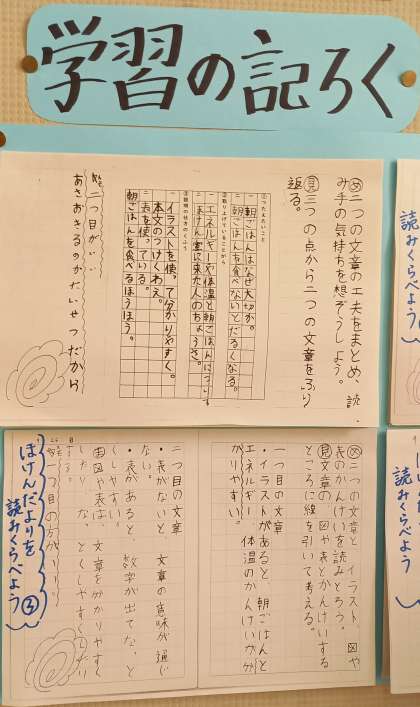 学習の記ろく
め二つの文章の工夫をまとめ、読
み手の気持ちを想ぞうしよう。
見三つの点から二つの文章をふり
返る。
①つたえたいこと
一 朝ごはんはなぜ大切か。
二 朝ごはんを食べないとだるくなる。
②取り上げていることがら
一 エネルギーや体温と朝ごはんについて
二 ほけん室に来た人のちょうさ。
③説明の仕方のくふう
一 イラストを使って分かりやすく。
本文のつけくわえ。
二 表を使っている。
朝ごはんを食べるほうほう。
二つ目がいい
あさおきるのがたいせつだから
め二つの文章と イラスト、図や
表のかんけいを読みとろう。
見文章の 図や表とかんけいする
ところに線を引いて考える。
一つ目の文章
・イラストがあると、朝ごはんと
エネルギー 体温のかんけいが分
かりやすい。
二つ目の文章
・表がないと 文章の意味が通じ
ない。
・表があると、数字が出てて、と
くしやすい。
ま図や表は 文章を分かりやすく
したり
一つ目の方がいい
ほけんだよりを
読みくらべよう ③
読みくらべよう
読みくらべよう